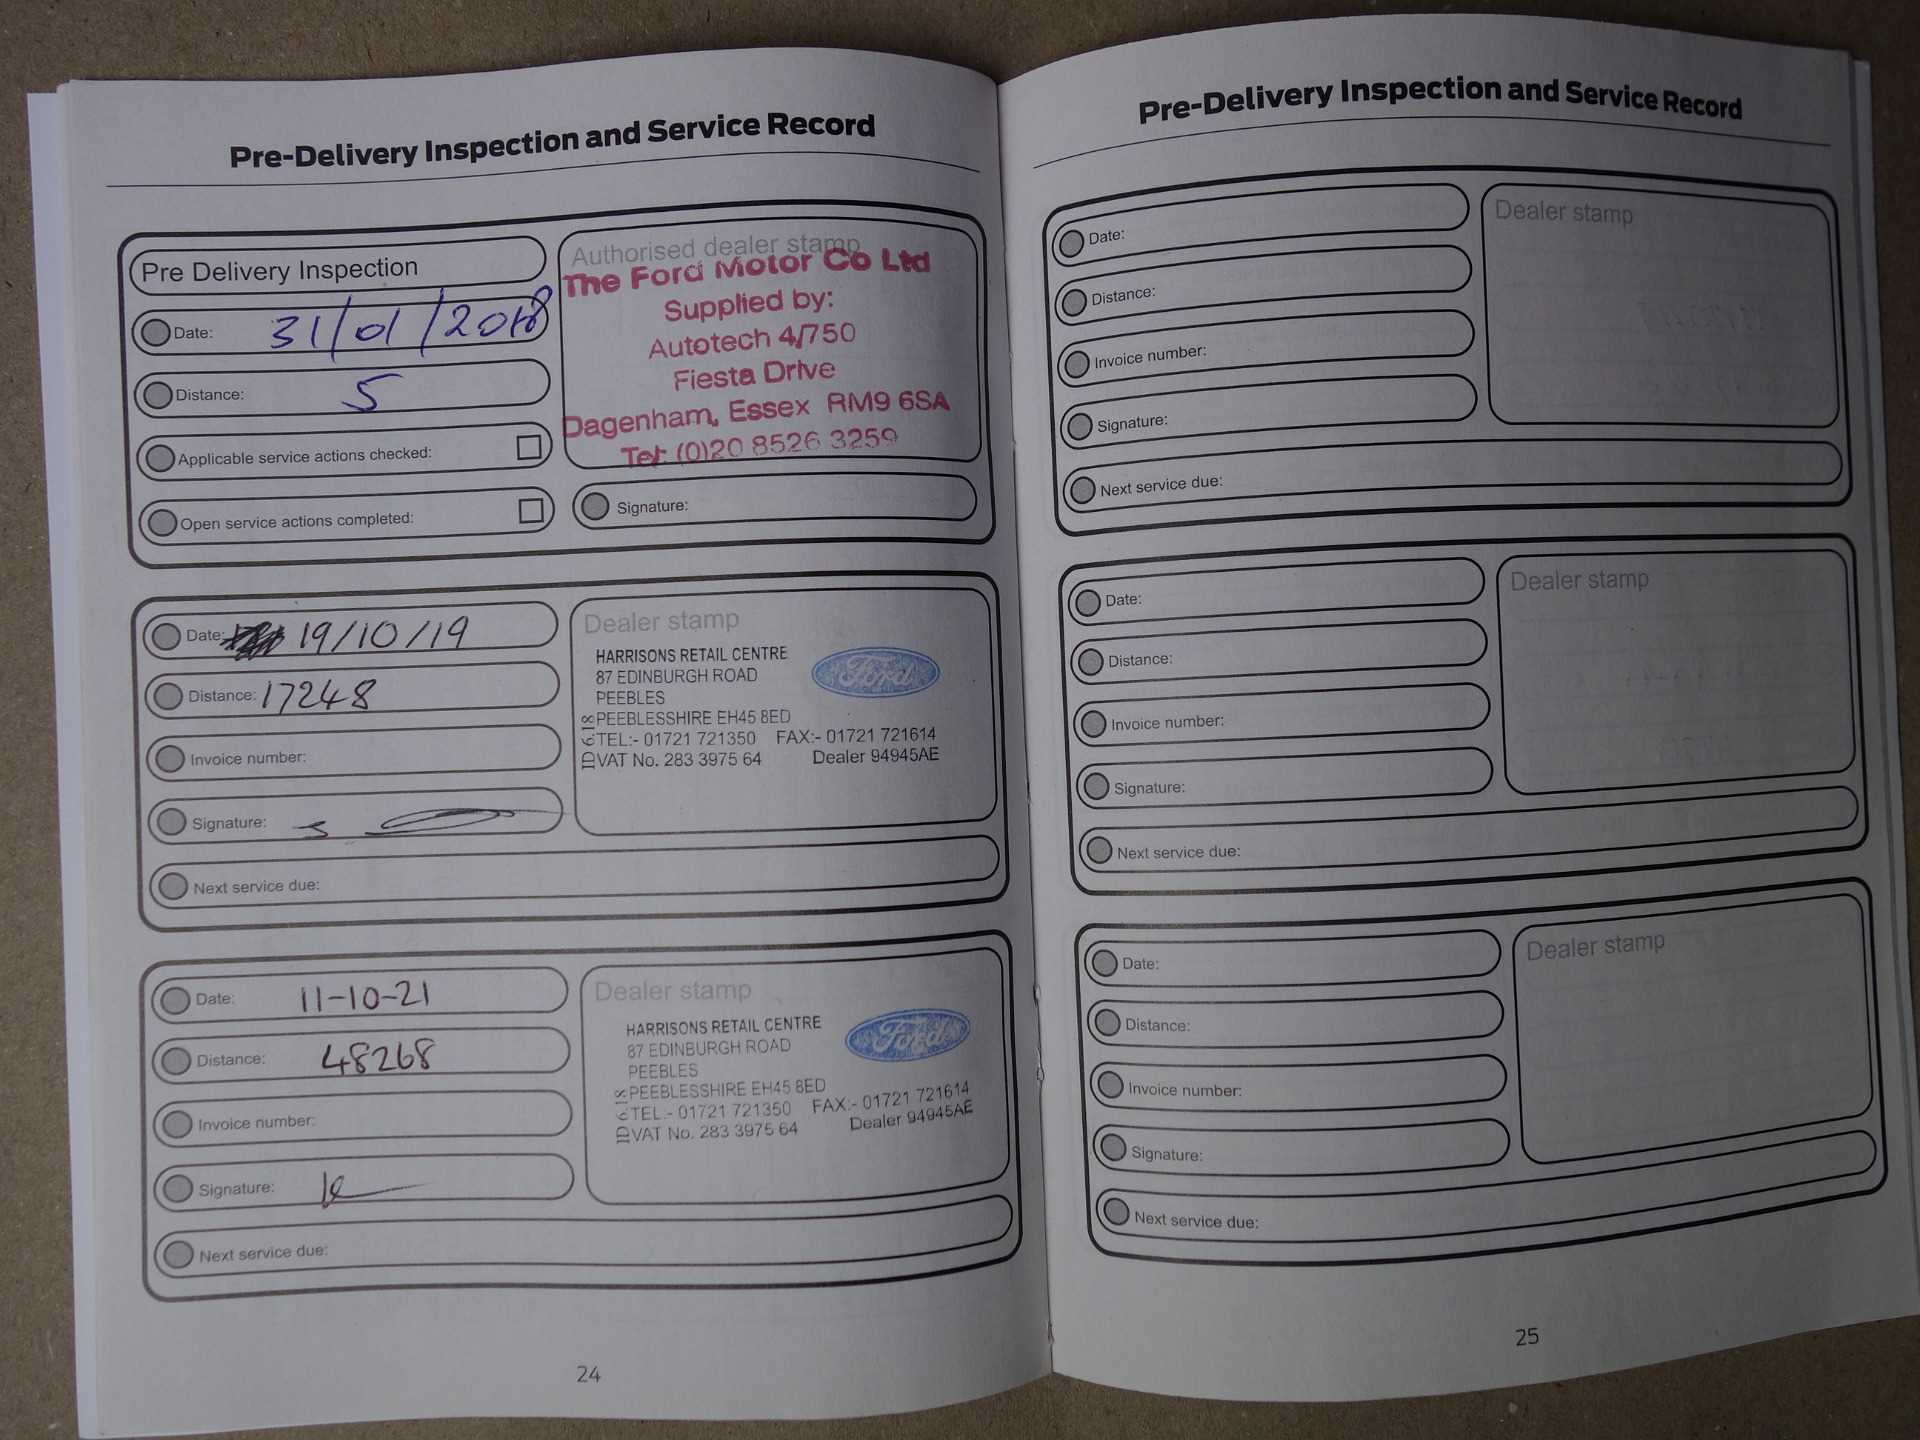 Pre-Delivery Inspection and Service Record
Pre Delivery Inspection
Date: 31/01/2018
Distance: 5
Applicable service actions checked:
Open service actions completed:
Authorised dealer stamp
The Ford Motor Co Ltd
Supplied by:
Autotech 4/750
Fiesta Drive
Dagenham, Essex RM9 6SA
Tel: (0)20 8526 3259
Signature:
Date: 19/10/19
Distance: 17248
Invoice number:
Signature:
Next service due:
Dealer stamp
HARRISONS RETAIL CENTRE
Ford
87 EDINBURGH ROAD
PEEBLES
PEEBLESSHIRE EH45 8ED
TEL:- 01721 721350 FAX:- 01721 721614
VAT No. 283 3975 64 Dealer 94945AE
Date: 11-10-21
Distance: 48268
Invoice number:
Signature:
Next service due:
Dealer stamp
HARRISONS RETAIL CENTRE
Ford
87 EDINBURGH ROAD
PEEBLES
PEEBLESSHIRE EH45 8ED
TEL:- 01721 721350 FAX:- 01721 721614
VAT No. 283 3975 64 Dealer 94945AE
24
Pre-Delivery Inspection and Service Record
Date:
Distance:
Invoice number:
Signature:
Next service due:
Dealer stamp
Date:
Distance:
Invoice number:
Signature:
Next service due:
Dealer stamp
Date:
Distance:
Invoice number:
Signature:
Next service due:
Dealer stamp
25